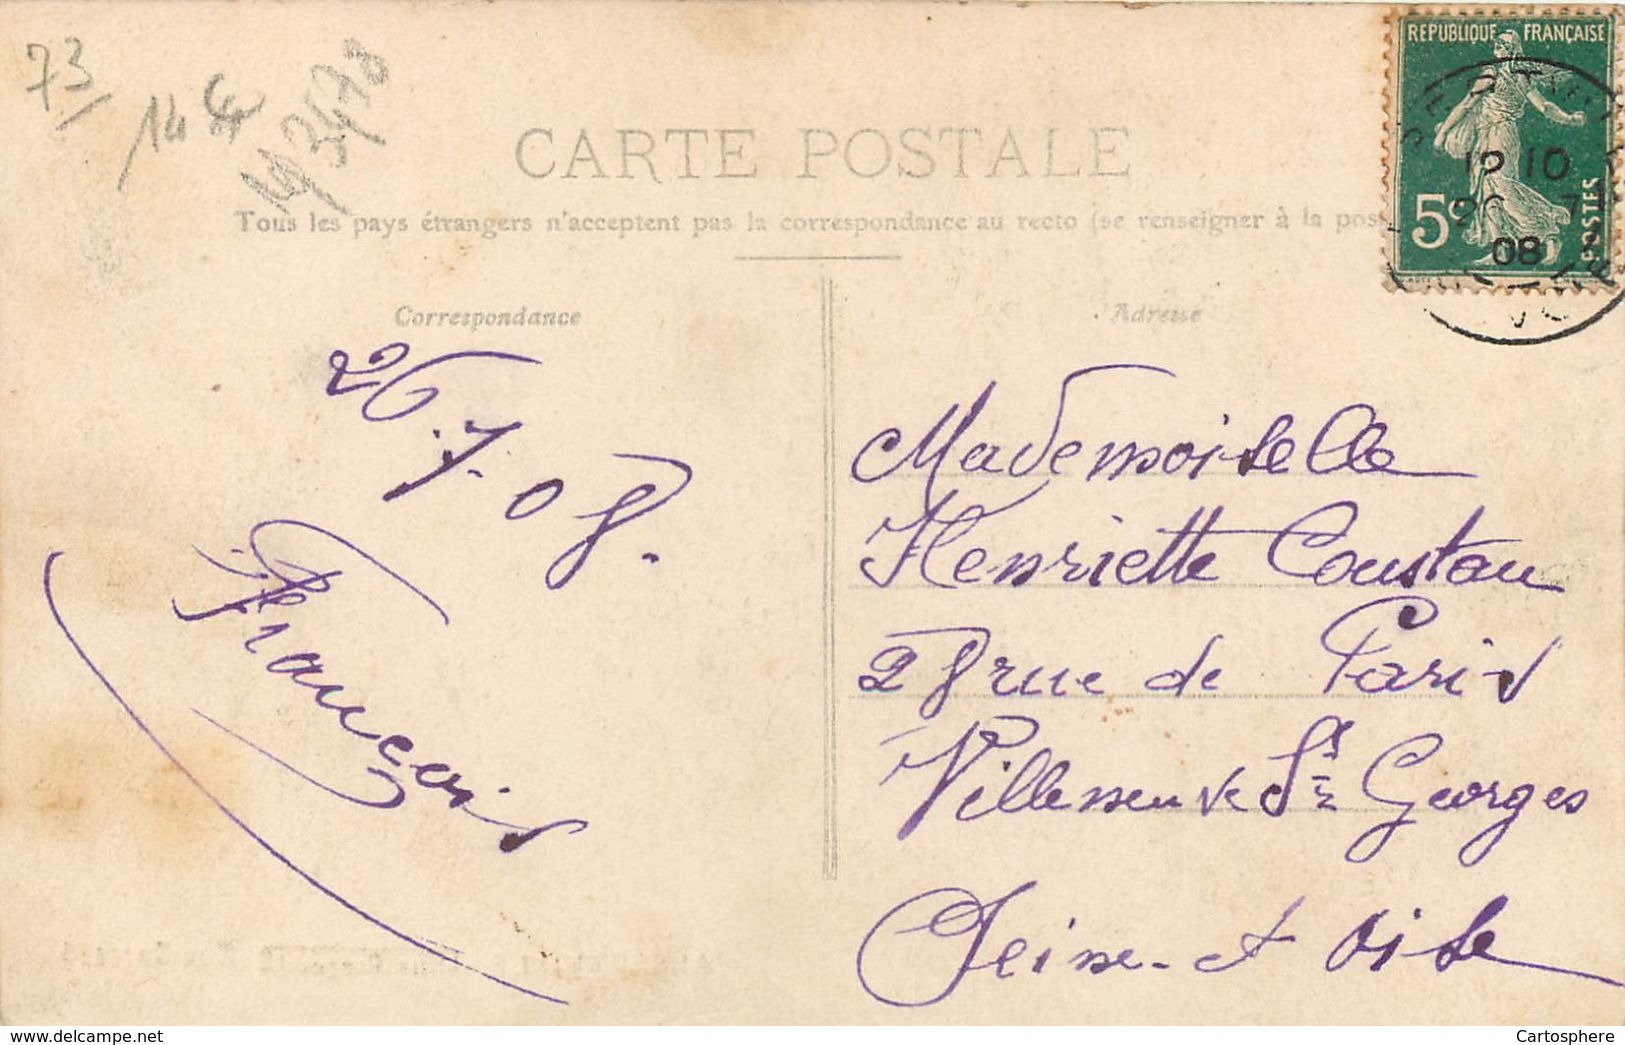 73
14 €
193478
CARTE POSTALE
Tous les pays étrangers n'acceptent pas la correspondance au recto (se renseigner à la pos
REPUBLIQUE FRANÇAISE
5c
POSTES
10
08
Correspondance
Adresse
26.7.08.
François
Mademoiselle
Henriette Coustau
28 rue de Paris
Villeneuve St Georges
Seine-et Oise
www.delcampe.net
Cartosphere